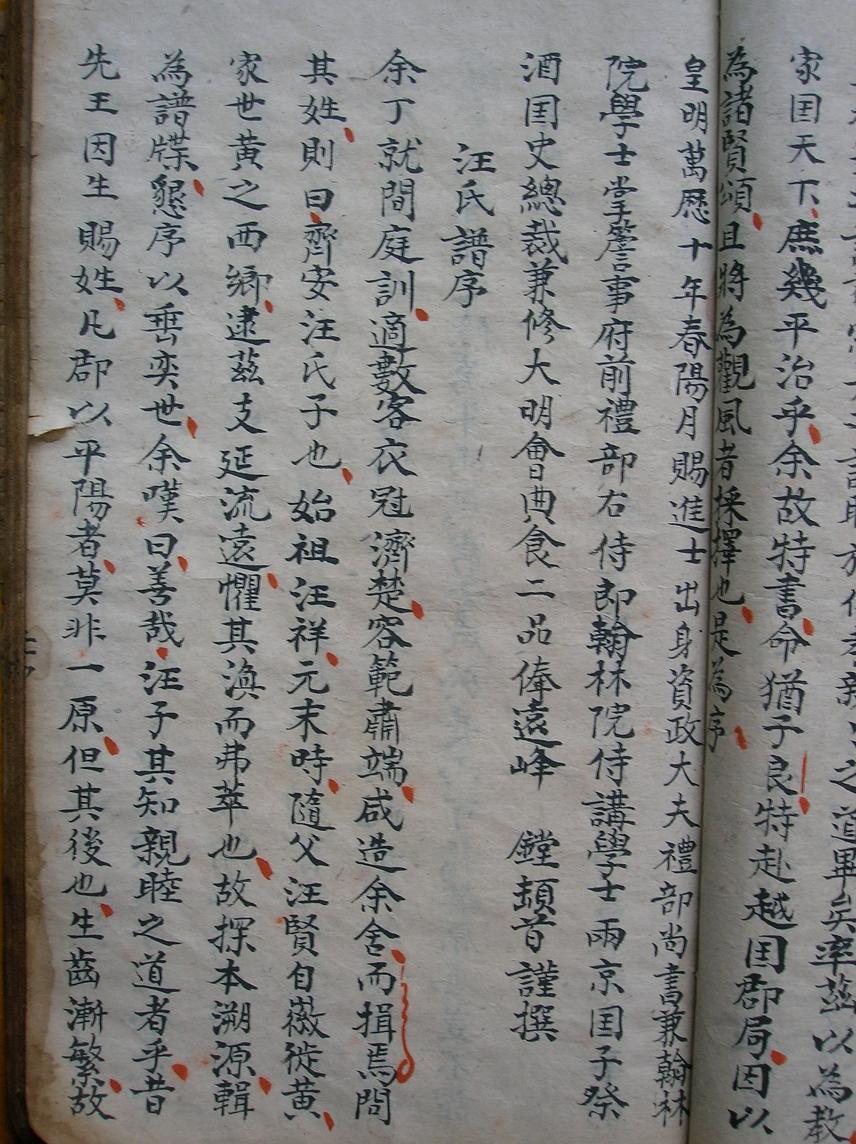 之道畢矣率茲以為教
家囯天下庶幾平治乎余故特書命猶子良特赴越囯郡局因以
為諸賢頌且將為觀風者採擇也是為序
皇明萬歷十年春陽月賜進士出身資政大夫禮部尚書兼翰林
院學士掌詹事府前禮部右侍郎翰林院侍講學士兩京囯子祭
酒囯史總裁兼修大明會典食二品俸遠峰 鏜頓首謹撰
汪氏譜序
余丁就間庭訓適數客衣冠濟楚容範肅端咸造余舍而揖焉問
其姓則曰齊安汪氏子也始祖汪祥元末時隨父汪賢自徽徙黃
家世黃之西鄉逮茲支延流遠懼其渙而弗萃也故探本溯源輯
為譜牒懇序以垂奕世余嘆曰善哉汪子其知親睦之道者乎昔
先王因生賜姓凡郡以平陽者莫非一原但其後也生齒漸繁故